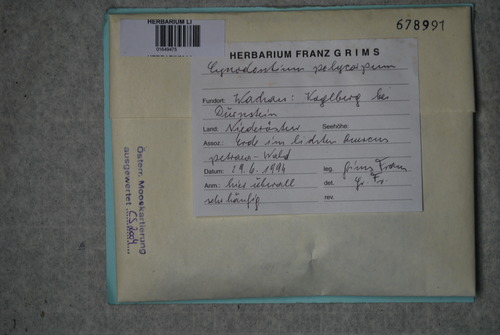 HERBARIUM LI
01649473
678991
HERBARIUM FRANZ GRIMS
Cynodontium polycarpum
Fundort: Wachau: Voglberg bei
Dürnstein
Land: Niederösterr. Seehöhe:
Assoz.: Erde im lichten Quercus
petraea-Wald
Datum: 19.6.1994 leg. Grims Franz
Anm.: hier überall det. Gr. Fr.
sehr häufig rev.
Österr. Mooskartierung
ausgewertet CS 2004